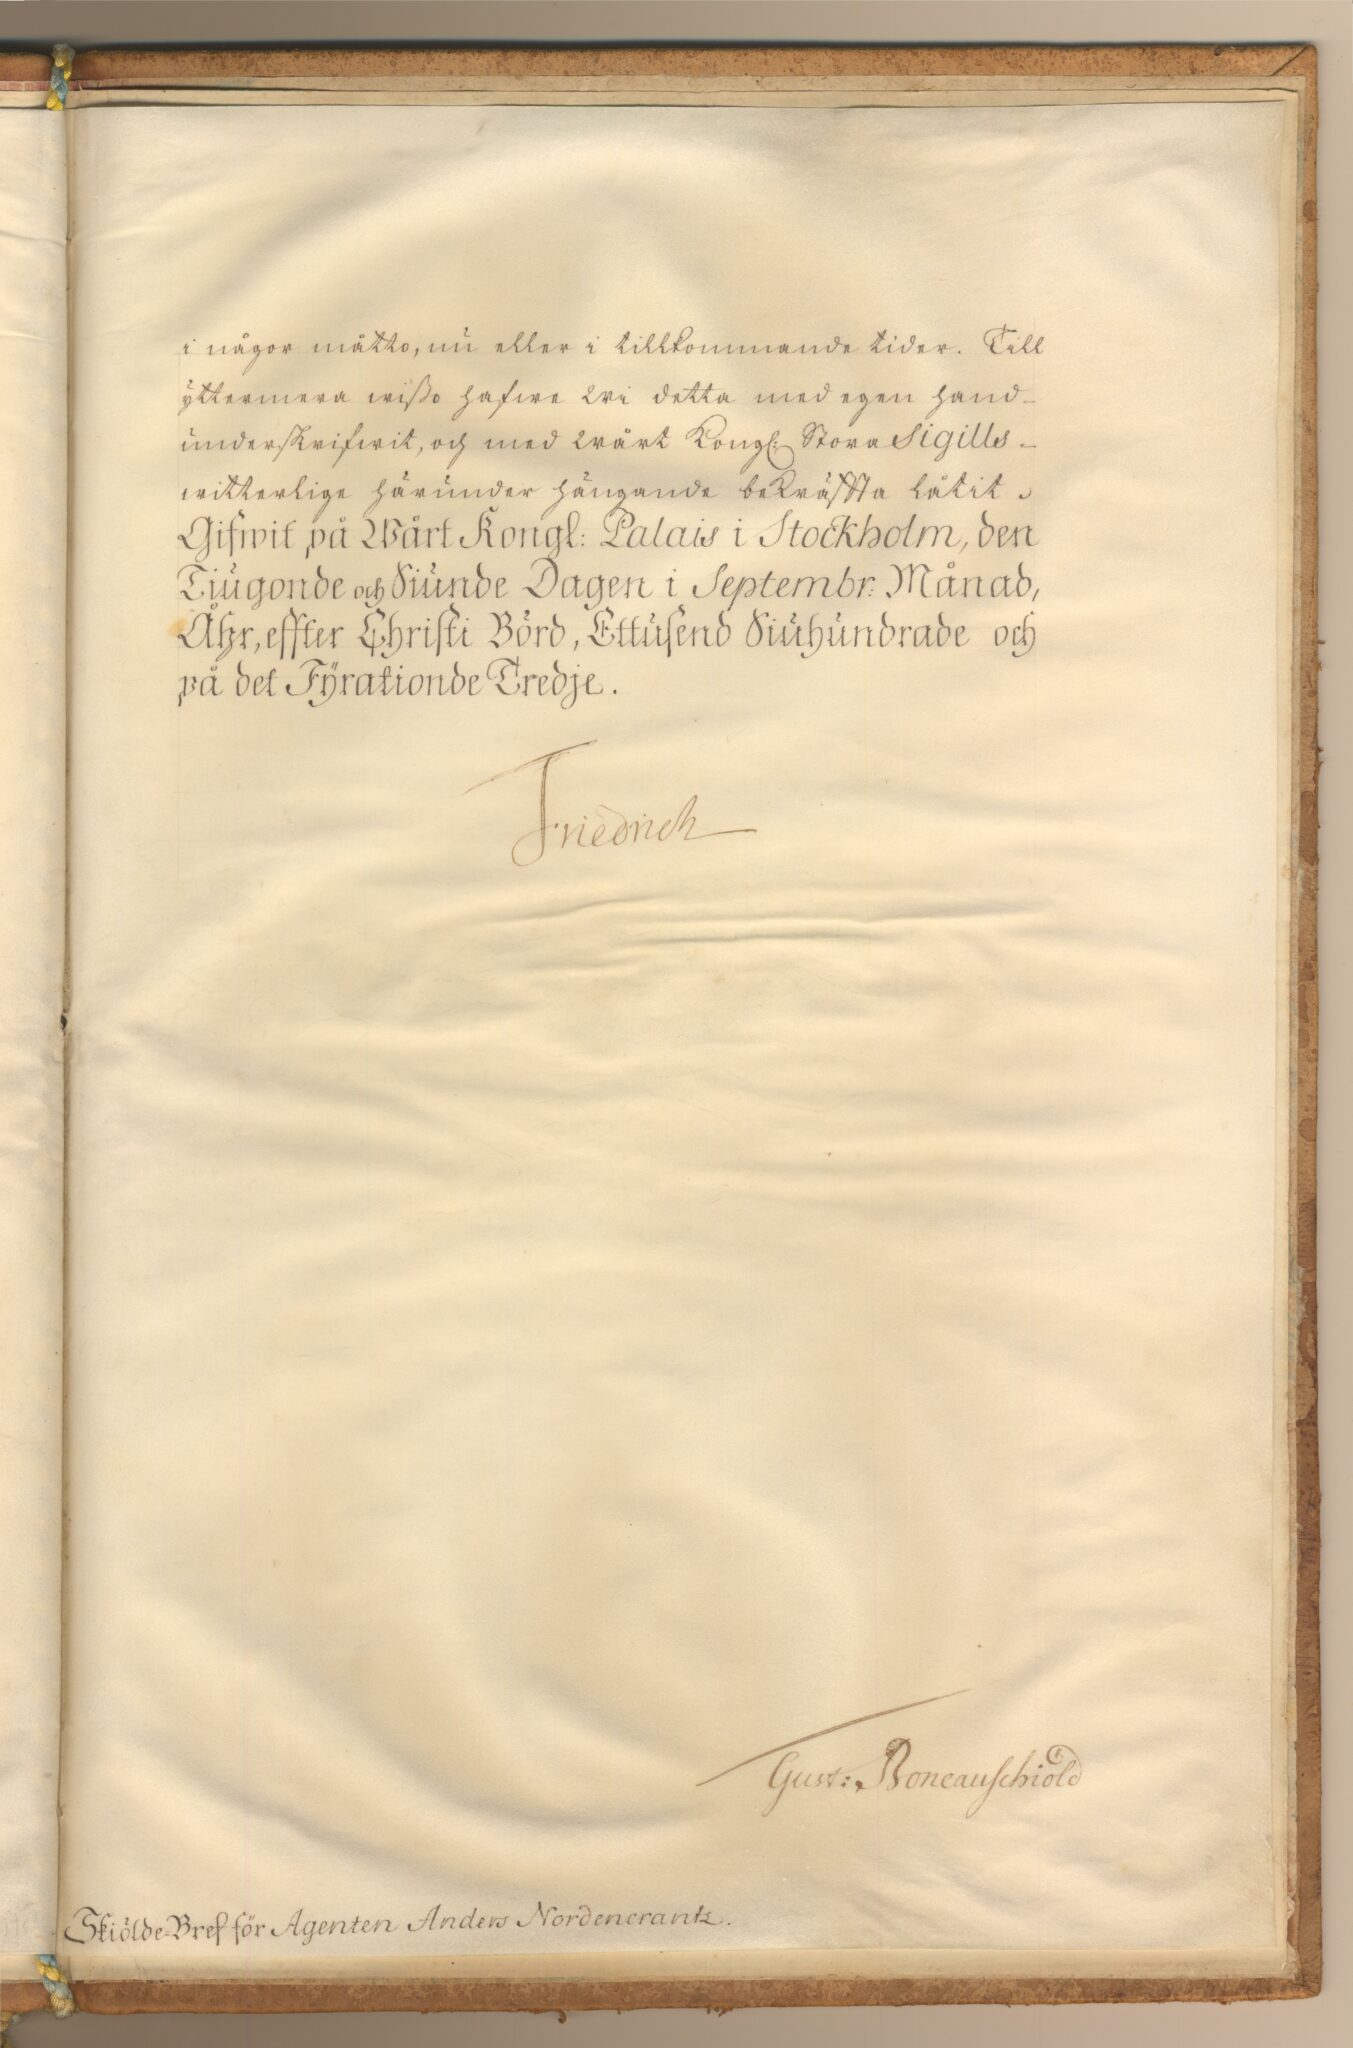 i någor måtto, nu eller i tillkommande tider. Till
yttermera wißo hafwe Wi detta med egen hand-
underskrifwit, och med Wårt Kongl: Stora Sigills-
witterlige härunder hängande bekräffta låtit.
Gifwit på Wårt Kongl: Palais i Stockholm, den
Tiugonde och Siunde Dagen i Septembr: Månad,
Åhr, effter Christi Börd, Ettusend Siuhundrade och
på det Fÿrationde Tredje.
Friedrich
Gust: Boneauschiöld
Skiölde-Bref för Agenten Anders Nordencrantz.